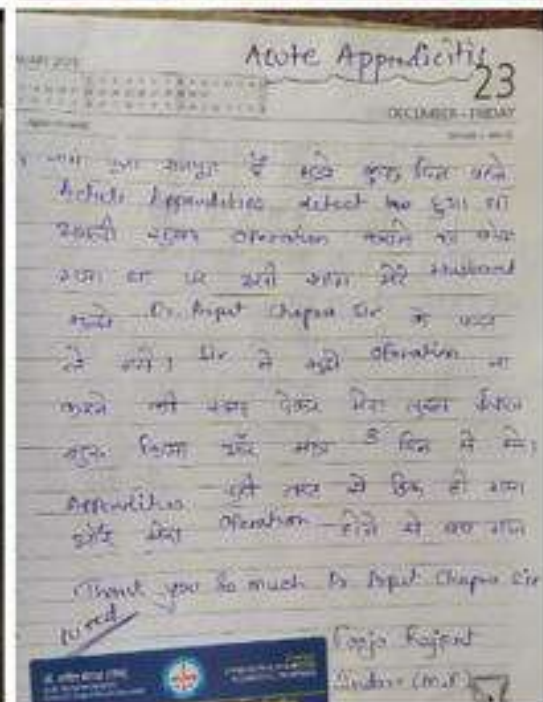 Acute Appendicitis
23
DECEMBER - FRIDAY
मेरा नाम पूजा राजपूत हैं मुझे कुछ दिन पहले
Acute Appendicitis detect हुआ था
operation कराने का बोला
गया था पर उसी मेरे Husband
मुझे Dr. Arpit Chopra Sir के पास
ले गये। Sir ने मुझे operation ना
करने की सलाह देकर मेरा तुरन्त ईलाज
शुरू किया और मात्र 3 दिन में मेरा
Appendicitis पूरी तरह से ठिक हो गया
और मेरा operation होने से बच गया
Thank you So much Dr. Arpit Chopra Sir
cured
Pooja Rajput
Indore (M.P)